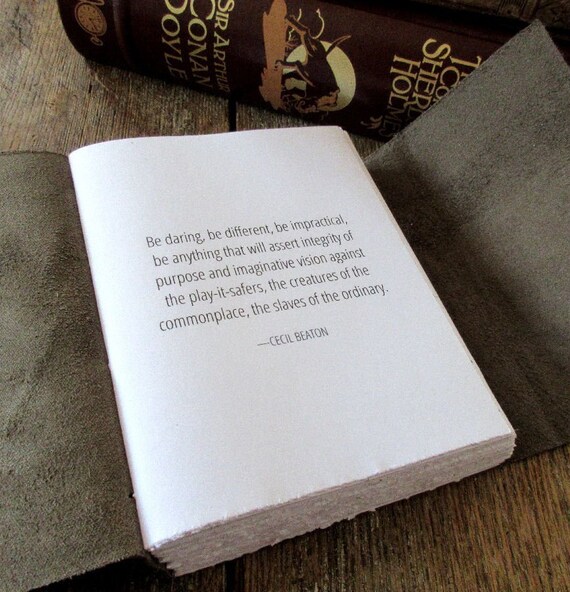 SIR ARTHUR
CONAN
DOYLE
SHERL
HOLMES
Be daring, be different, be impractical,
be anything that will assert integrity of
purpose and imaginative vision against
the play-it-safers, the creatures of the
commonplace, the slaves of the ordinary.
—CECIL BEATON